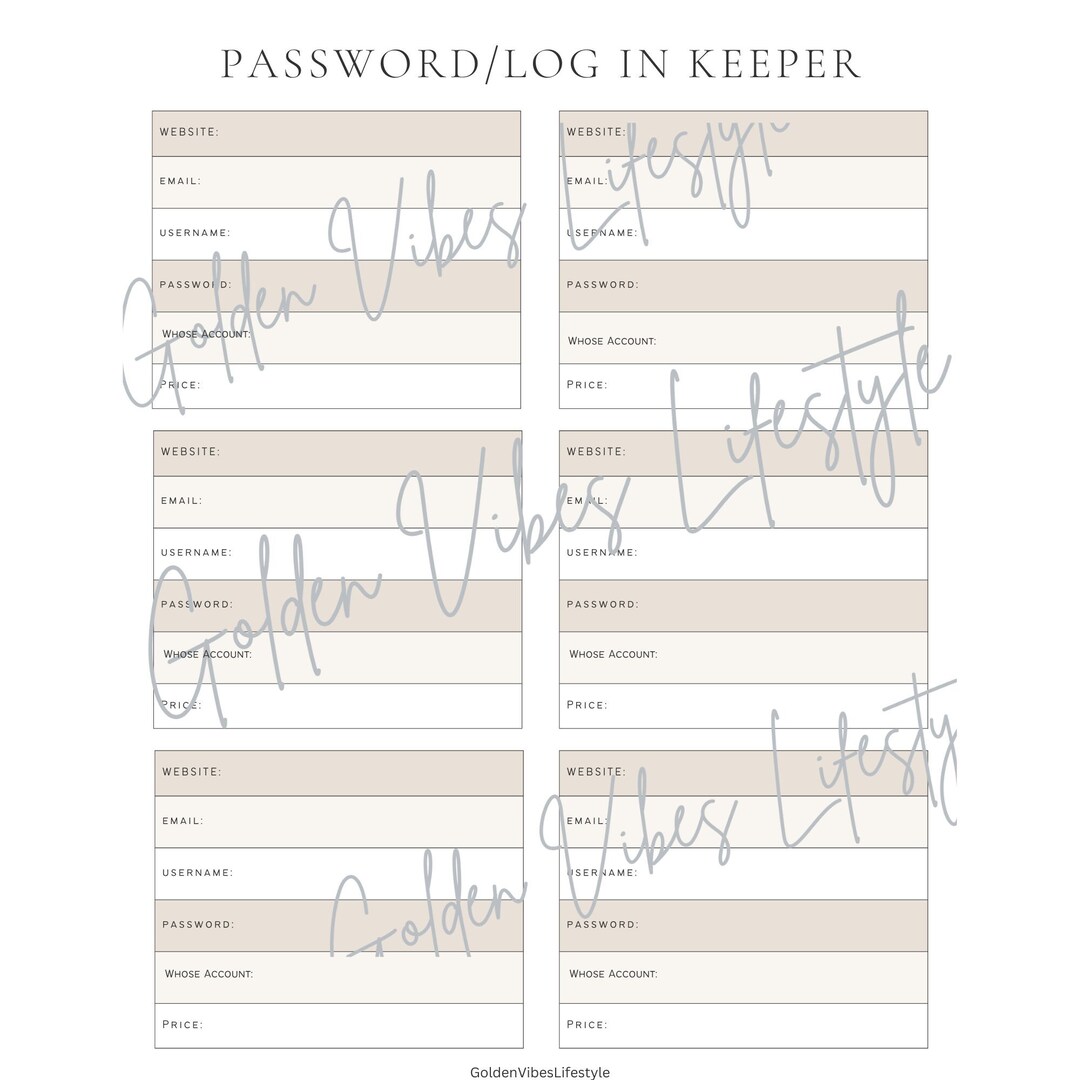 PASSWORD/LOG IN KEEPER
WEBSITE:
EMAIL:
USERNAME:
PASSWORD:
WHOSE ACCOUNT:
PRICE:
WEBSITE:
EMAIL:
USERNAME:
PASSWORD:
WHOSE ACCOUNT:
PRICE:
WEBSITE:
EMAIL:
USERNAME:
PASSWORD:
WHOSE ACCOUNT:
PRICE:
WEBSITE:
EMAIL:
USERNAME:
PASSWORD:
WHOSE ACCOUNT:
PRICE:
WEBSITE:
EMAIL:
USERNAME:
PASSWORD:
WHOSE ACCOUNT:
PRICE:
WEBSITE:
EMAIL:
USERNAME:
PASSWORD:
WHOSE ACCOUNT:
PRICE:
Golden Vibes Lifestyle
Golden Vibes Lifestyle
Golden Vibes Lifesty
GoldenVibesLifestyle